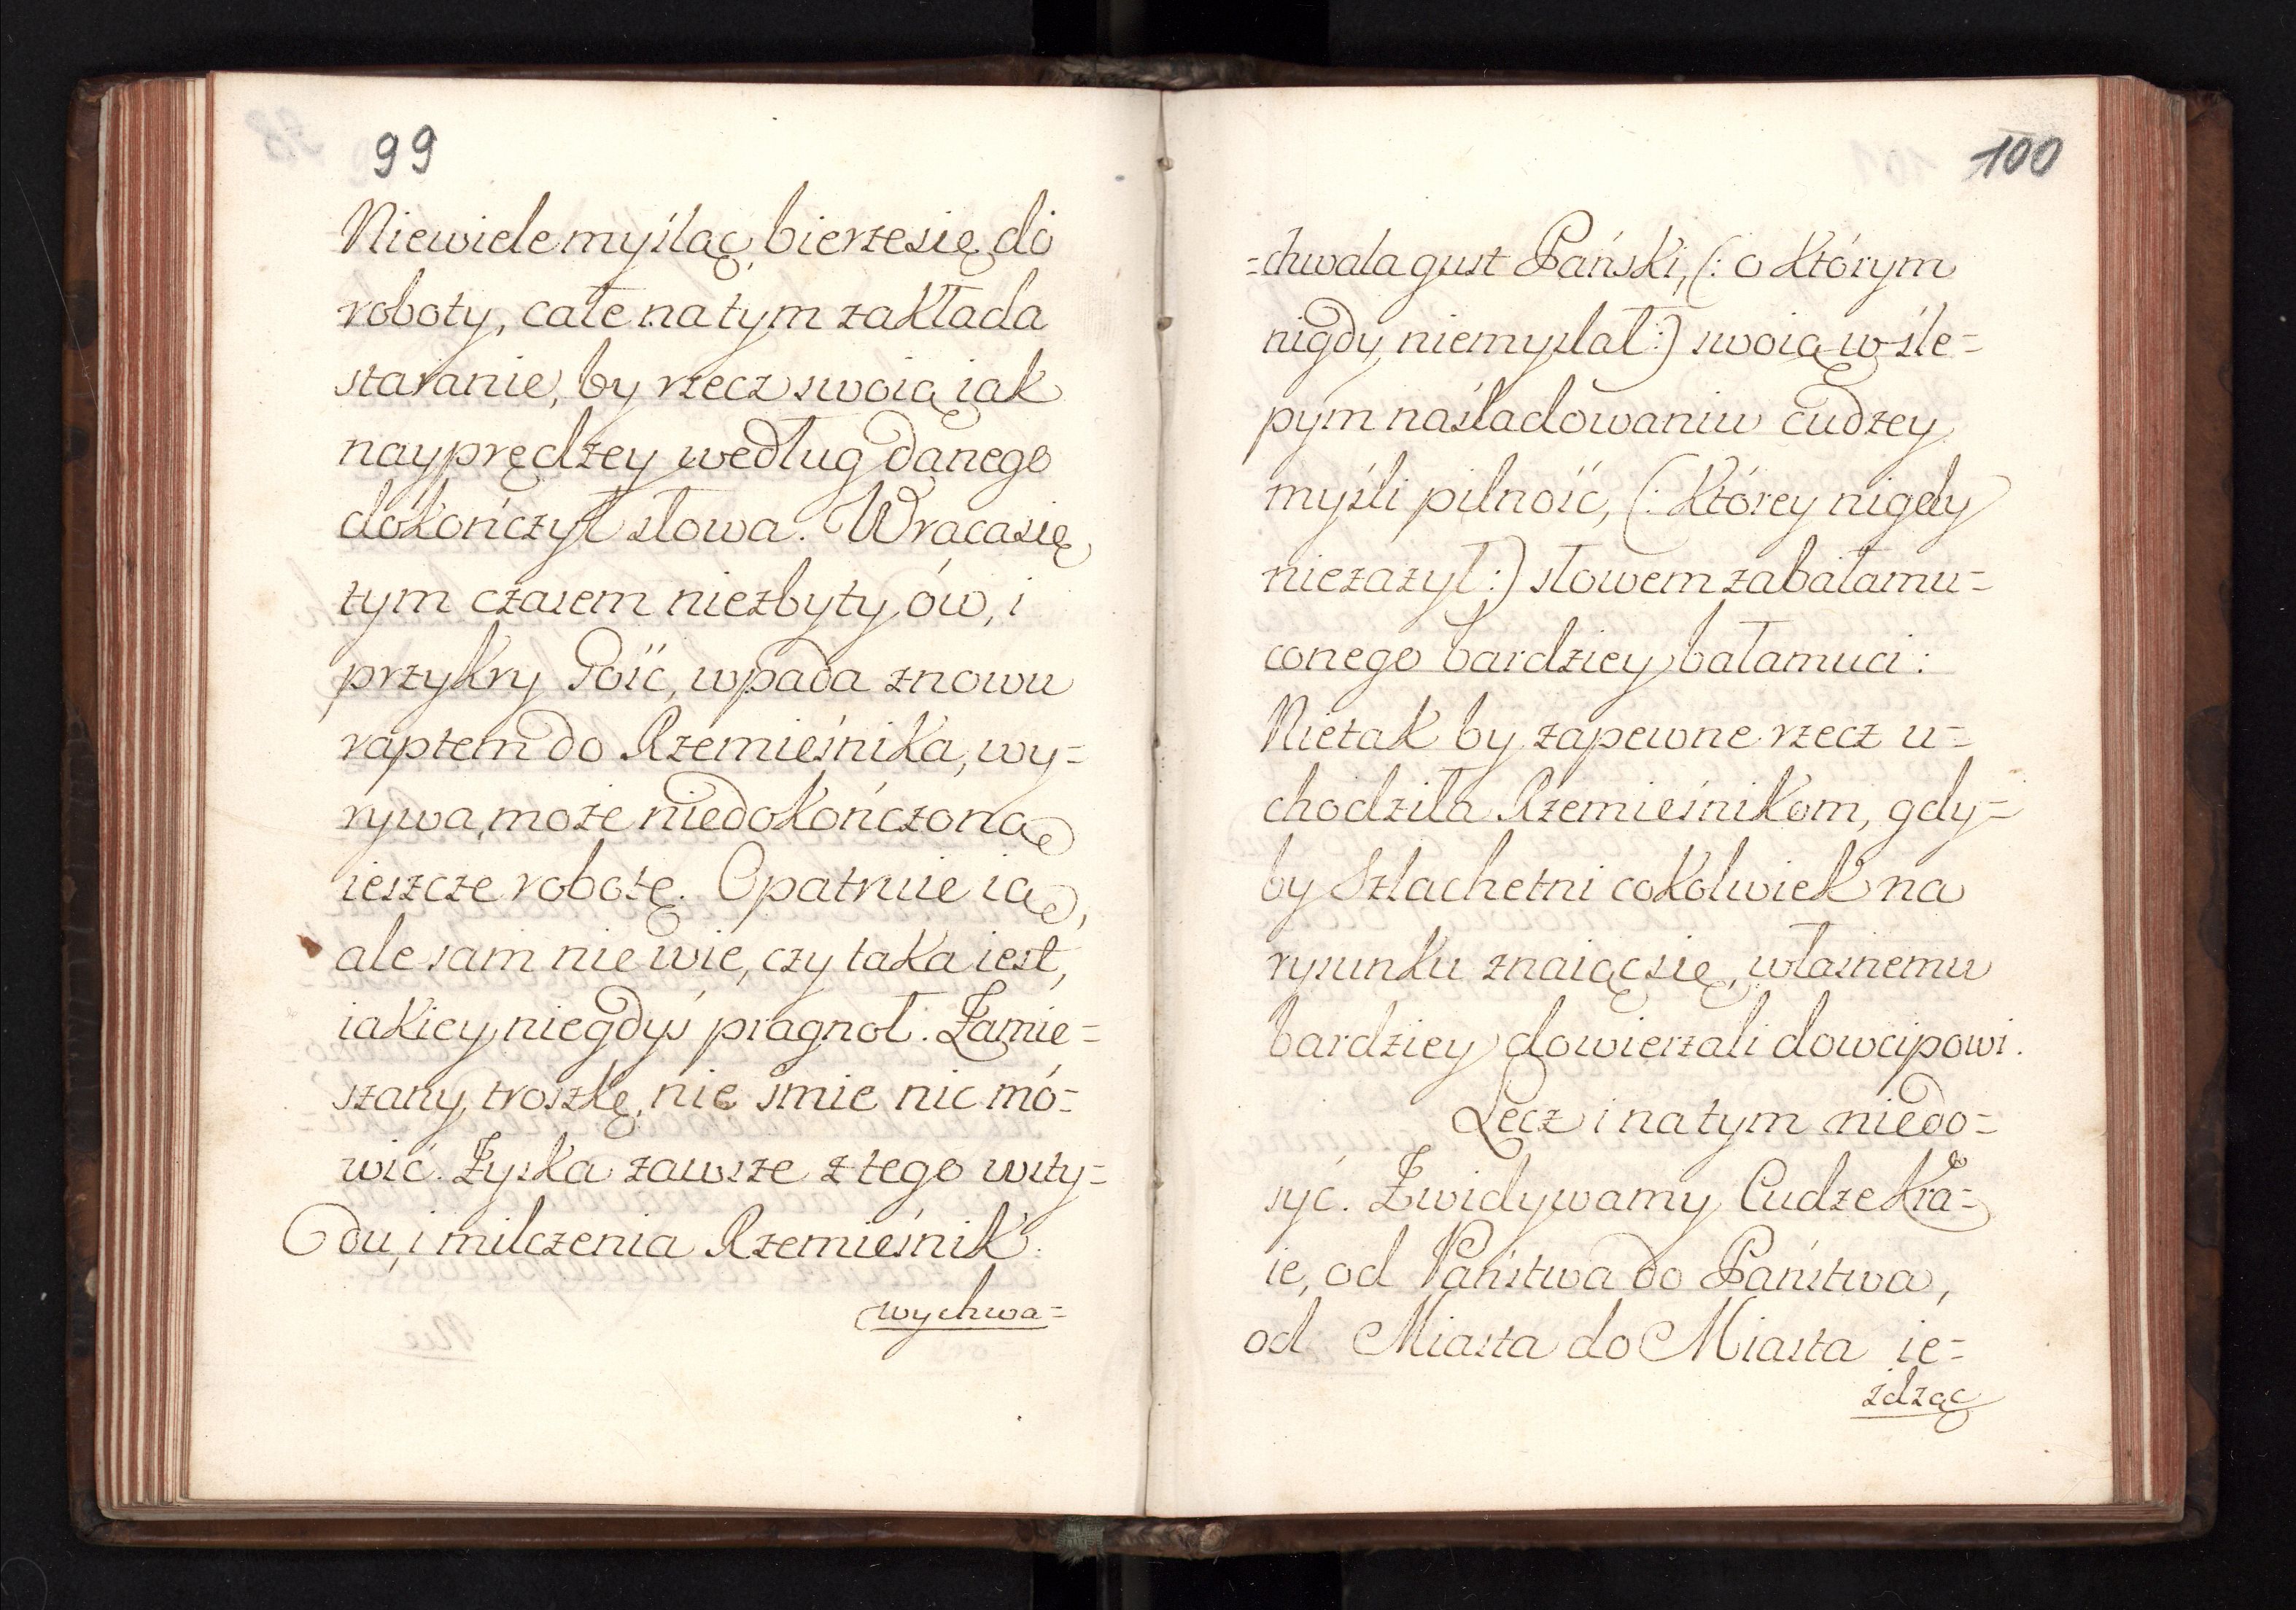 99
Niewiele myśląc, bierze się do
roboty, całe na tym zakłada
staranie, by rzecz swoią iak
nayprędzey według danego
dokończył słowa. Wraca się
tym czasem niezbyty ów, i
przykry Gość, wpada znowu
raptem do Rzemieśnika, wy=
rywa, może niedokończoną
ieszcze robotę. Opatruie ią,
ale sam nie wie, czy taka iest,
iakiey niegdyś pragnoł. Zamie=
szany, troszkę, nie śmie nic mó=
wić. Zyska zawsze z tego wsty=
du, i milczenia Rzemieśnik.
wychwa=
100
=chwala gust Pański, (: o którym
nigdy niemyslał :) swoią w śle=
pym naśladowaniu cudzey
myśli pilność, (: którey nigdy
niezazył :) słowem zabałamu=
conego bardziey bałamuci:
Nietak by zapewne rzecz u=
chodziła Rzemieśnikom, gdy=
by Szlachetni cokolwiek na
rysunku znaiąc się, własnemu
bardziey dowierzali dowcipowi.
Lecz i na tym niedo=
syć. Zwidywamy Cudze Kra=
ie, od Państwa do Państwa,
od Miasta do Miasta ie=
zdząc